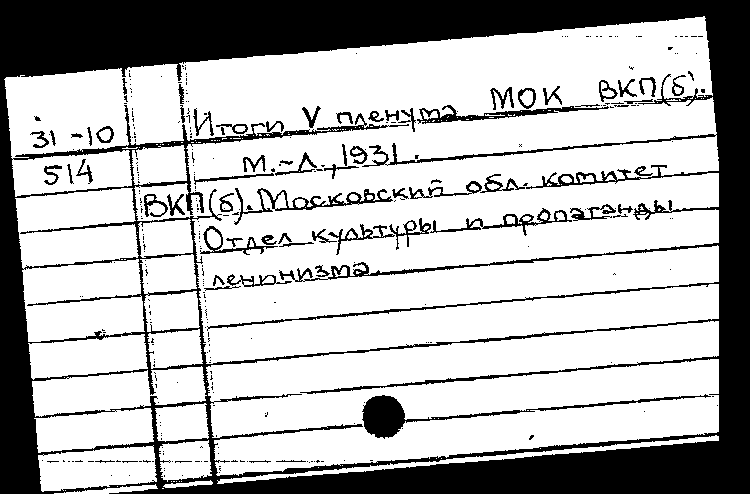 31-10
514
Итоги V пленума МОК ВКП(б).
М.-Л., 1931.
ВКП(б). Московский обл. комитет.
Отдел культуры и пропаганды
ленинизма.